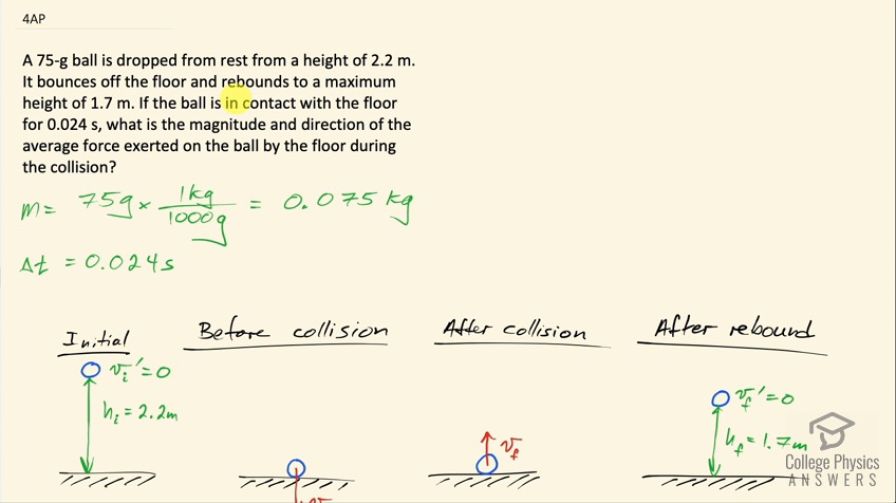 4AP
A 75-g ball is dropped from rest from a height of 2.2 m.
It bounces off the floor and rebounds to a maximum
height of 1.7 m. If the ball is in contact with the floor
for 0.024 s, what is the magnitude and direction of the
average force exerted on the ball by the floor during
the collision?
m = 75g × 1kg/1000g = 0.075 kg
Δt = 0.024s
Initial
Before collision
After collision
After rebound
v_i' = 0
h_i = 2.2m
v_f
v_f' = 0
h_f = 1.7m
College Physics
ANSWERS